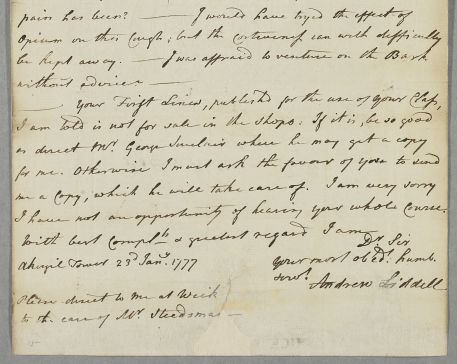 pain has been? — I would have tryed the effect of
Opium on this Cough; but the costiveness can with difficulty
be kept away. — I was affraid to venture on the Bark
without advice —
— Your First Lines, published for the use of your Class,
I am told is not for sale in the shops: If it is, be so good
as direct Mr. George Sinclair where he may get a copy
for me. Otherwise I must ask the favour of you to send
me a Copy, which he will take care of. I am very sorry
I have not an opportunity of hearing your whole Course.
With best Complts. & greatest regard I am
Dr. Sir
Your most obedt. humb.
servt.
Andrew Liddell
Tower 23d. Janry. 1777
Please direct to me at Weik
to the care of Mr. Steedsman —